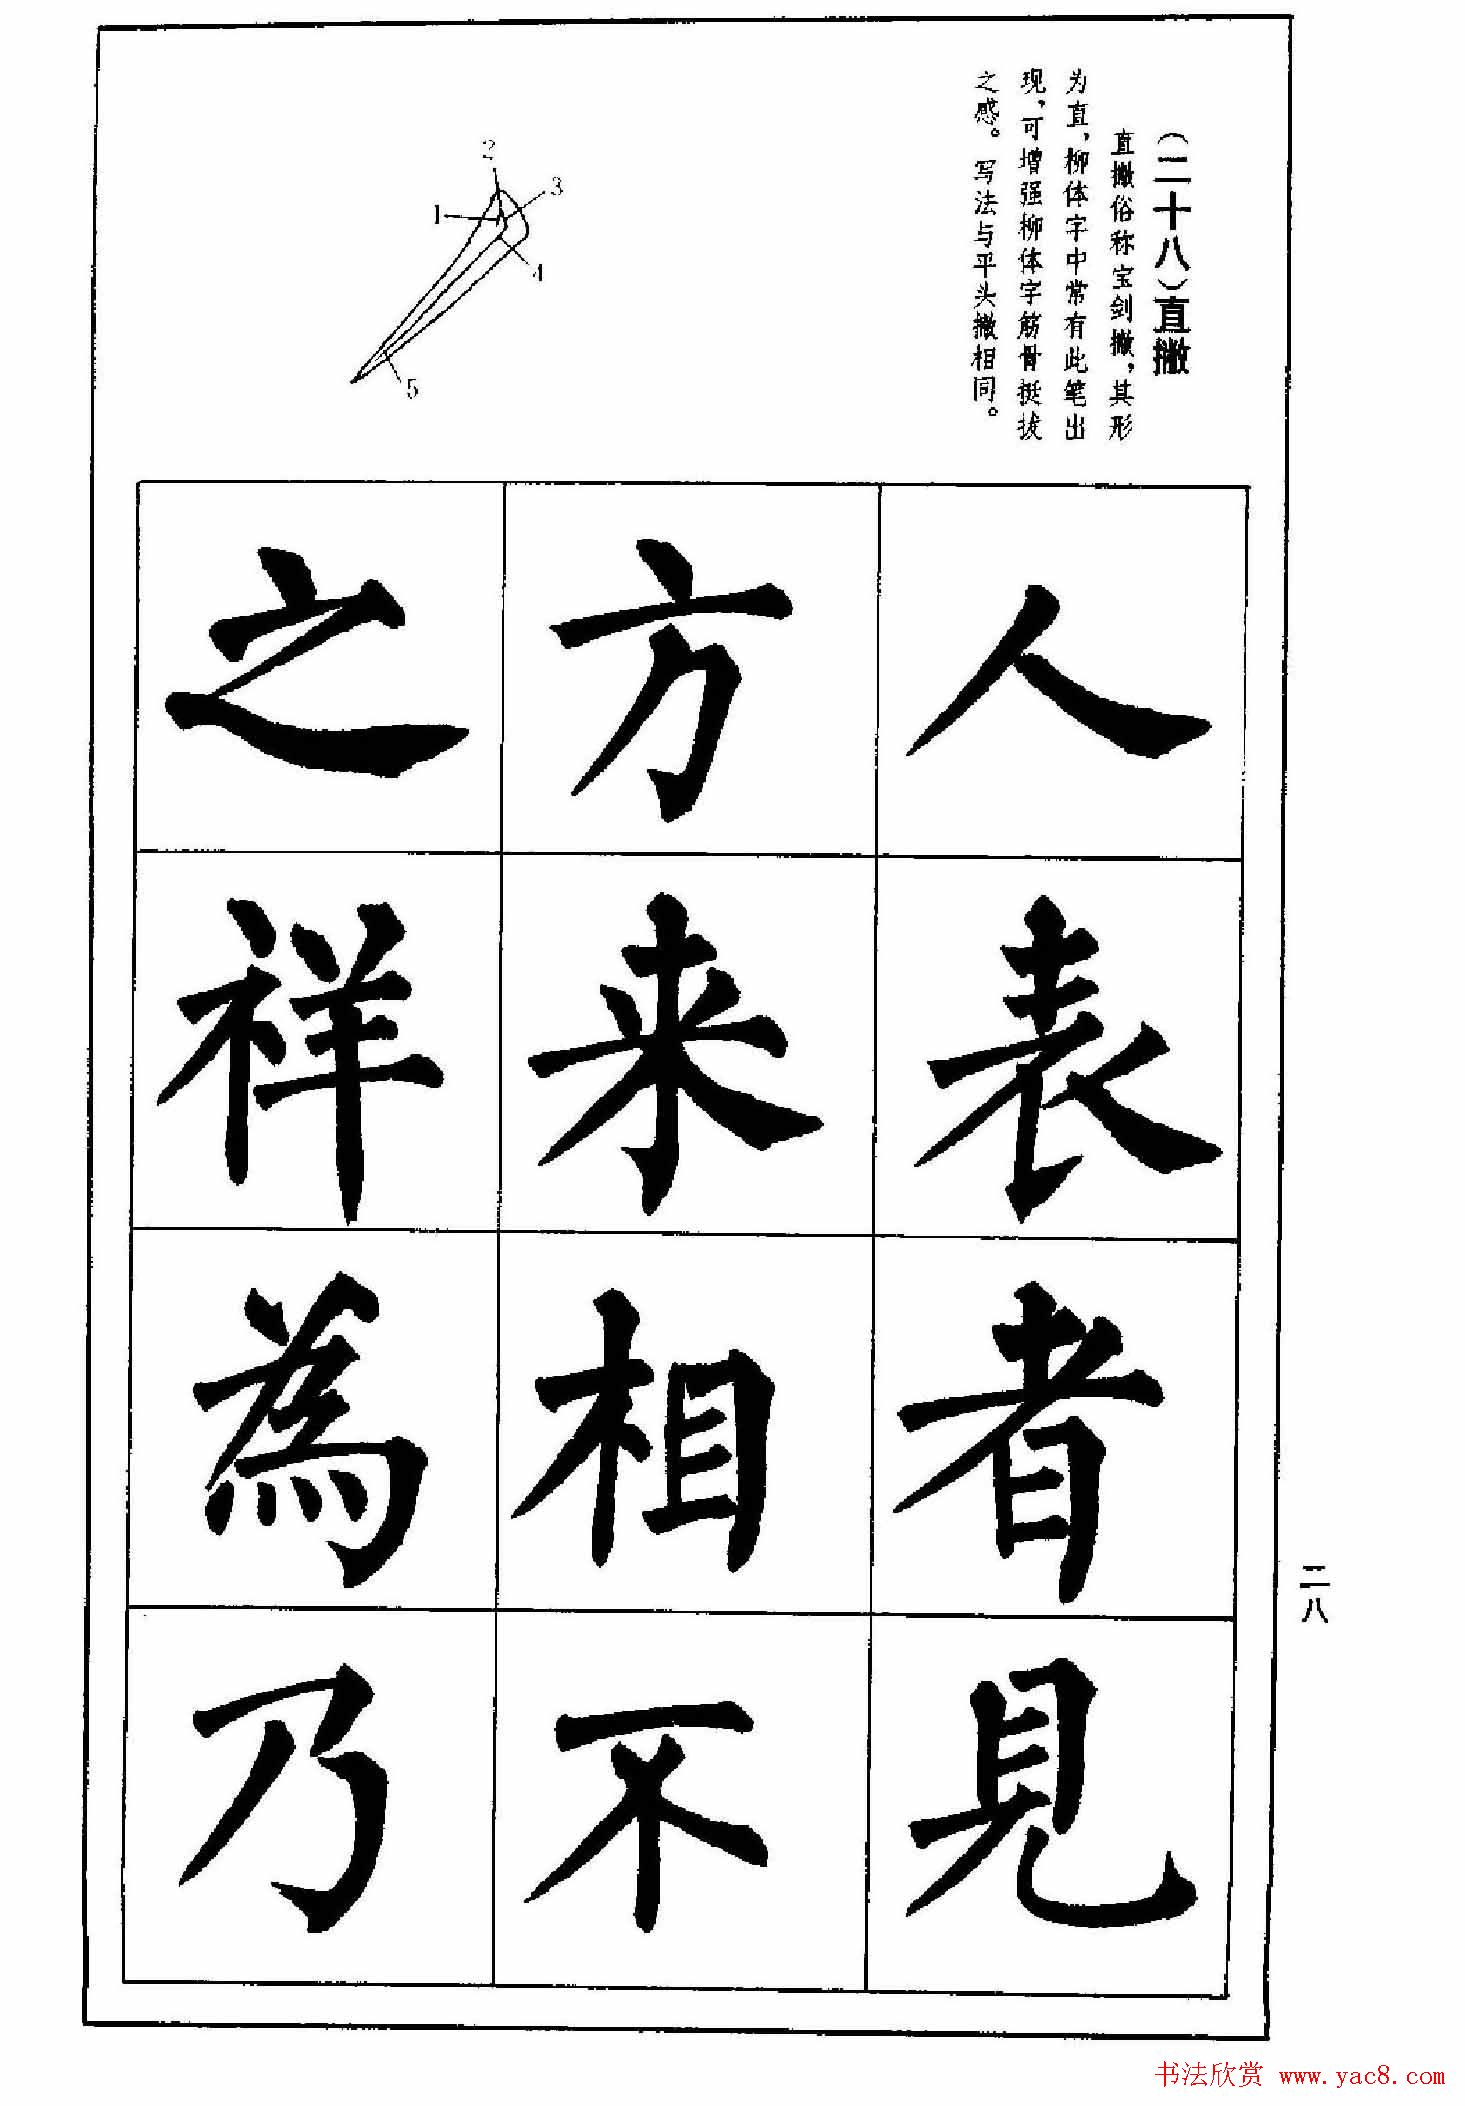 (二十八)直撇
直撇俗称宝剑撇,其形
为直,柳体字中常有此笔出
现,可增强柳体字筋骨挺拔
之感。写法与平头撇相同。
1
2
3
4
5
人表者見
方来相不
之祥為乃
二八
书法欣赏 www.yac8.com